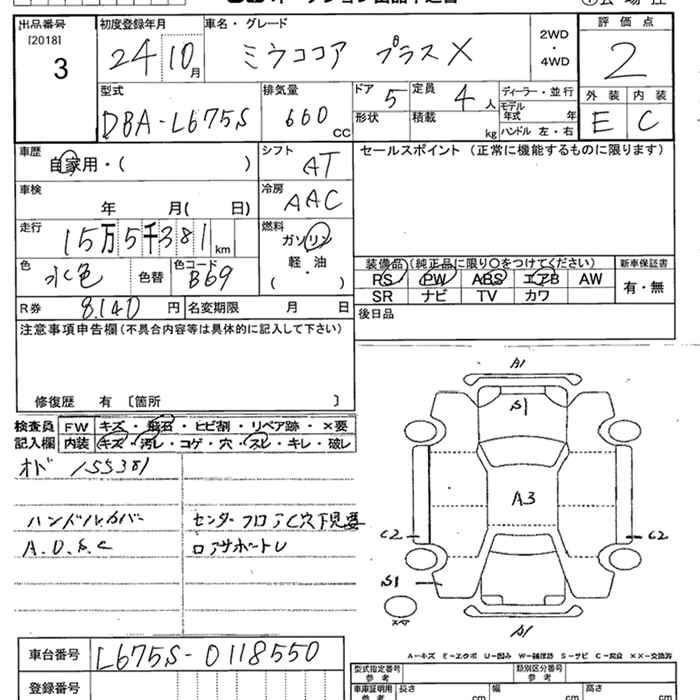 出品番号 [2018] 3
初度登録年月 24 10月
車名・グレード ミラココア プラスX
2WD・4WD
評価点 2
外装 E 内装 C
型式 DBA-L675S
排気量 660 CC
ドア 5
形状
定員 4人
積載 kg
ディーラー・並行
モデル年式 年
ハンドル 左・右
車歴 自家用・( )
シフト AT
セールスポイント (正常に機能するものに限ります)
車検 年 月( 日)
冷房 AAC
走行 15万5千381km
燃料 ガソリン 軽・油 ( )
色 水色 色替 色コード B69
装備品(純正品に限り○をつけてください) 新車保証書
RS PW ABS エアB AW 有・無
SR ナビ TV カワ
R券 8.140円 名変期限 月 日
後日品
注意事項申告欄(不具合内容等は具体的に記入して下さい)
修復歴 有 〔箇所 〕
検査員記入欄
FW キズ・飛石・ヒビ割・リペア跡・×要
内装 キズ・汚レ・コゲ・穴・スレ・キレ・破レ
オド 155381
ハンドルカバー センターフロアC穴下見要
A.D.S.C ロアサポートU
A1
S1
A3
C2 C2
S1
スペア
S1
A-キズ E-エクボ U-凹み W-補修跡 S-サビ C-腐食 XX-交換済
車台番号 L675S-0118550
登録番号
型式指定番号 参考 類別区分番号 参考
車庫証明用 参考 長さ cm 幅 cm 高さ cm